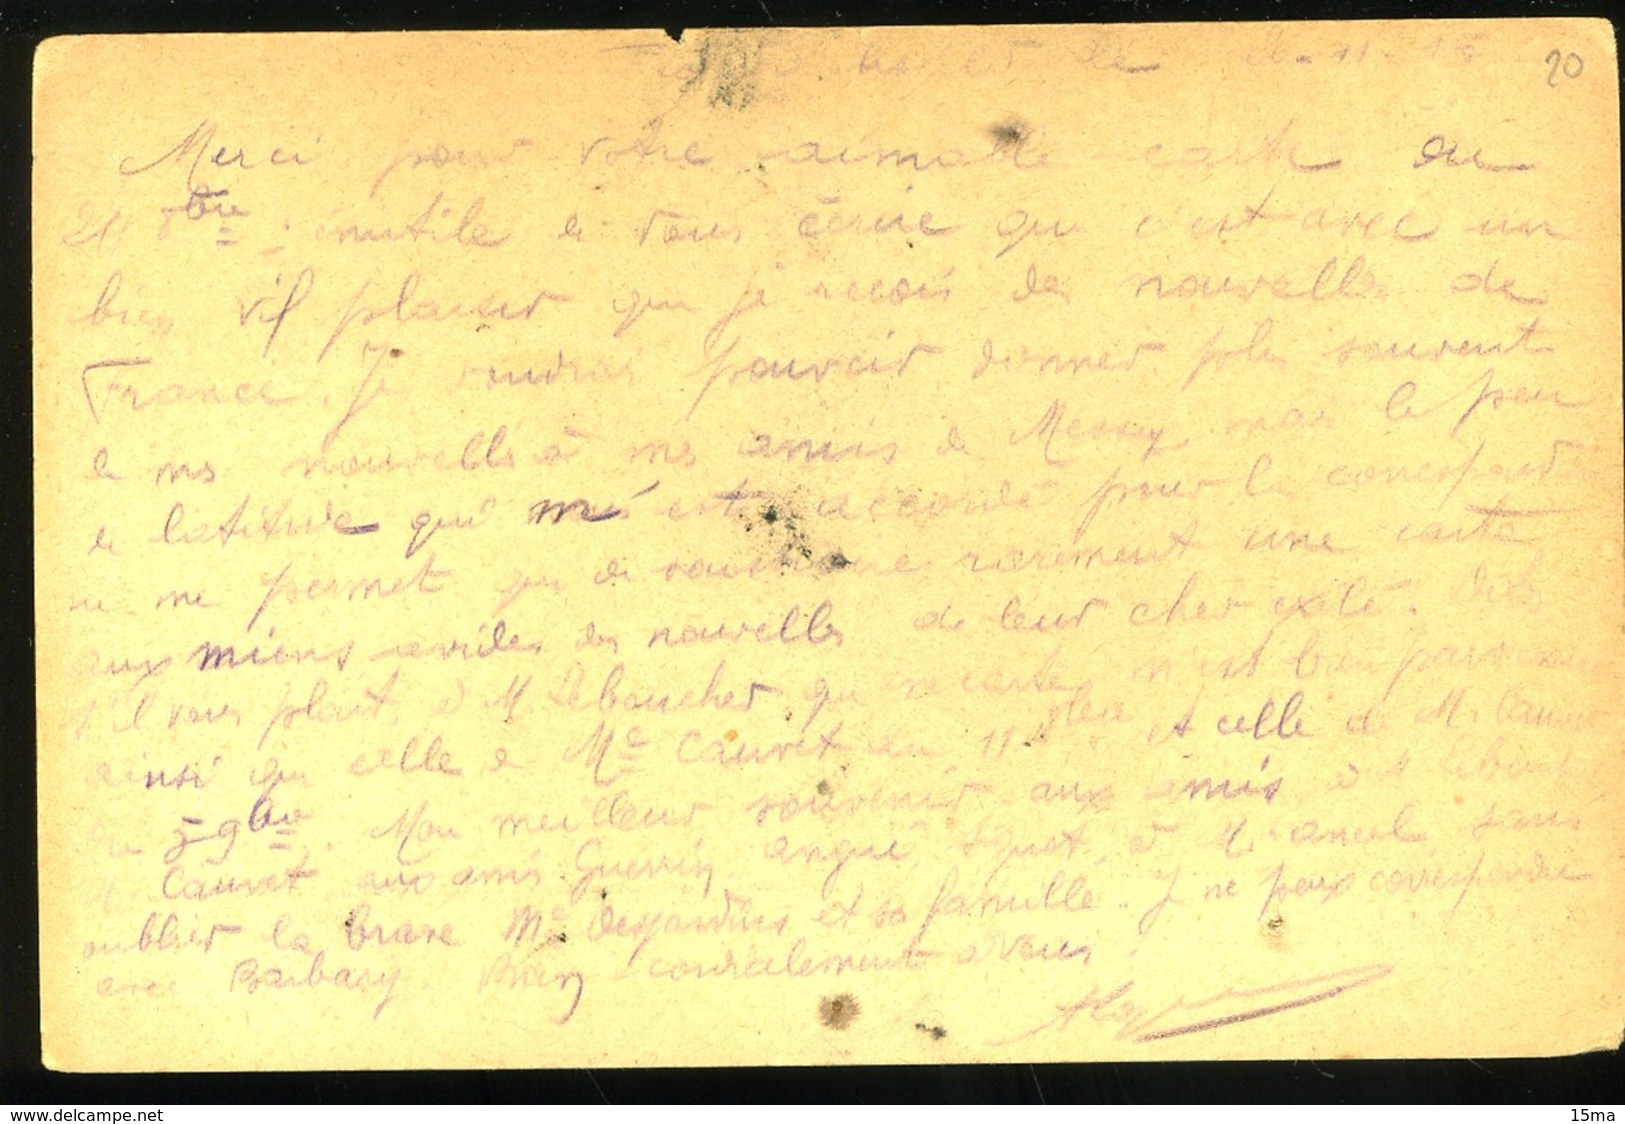 le 26-11-15
20
Merci pour votre aimable carte du
24 8bre ; inutile de vous écrire que c'est avec un
bien vif plaisir que je reçois des nouvelles de
France. Je voudrais pouvoir donner plus souvent
de mes nouvelles à mes amis de Messey, mais le peu
de latitude qui m'est accordé pour la correspondance
ne me permet que de rarement une carte
aux miens avides des nouvelles de leur cher exilé. Dites
s'il vous plait, à M. Leboucher que sa carte m'est bien parvenue
ainsi que celle de Me Cauvet du 11 8bre et celle de M. Cauvet
du 5 9bre. Mon meilleur souvenir aux amis à M Leboucher
M. Cauvet, aux amis Guerrin, angué, à M. ancel, sans
oublier la brave Me Desjardins et sa famille. Je ne peux correspondre
avec Barbary. Bien cordialement à vous
delcampe.net
15ma